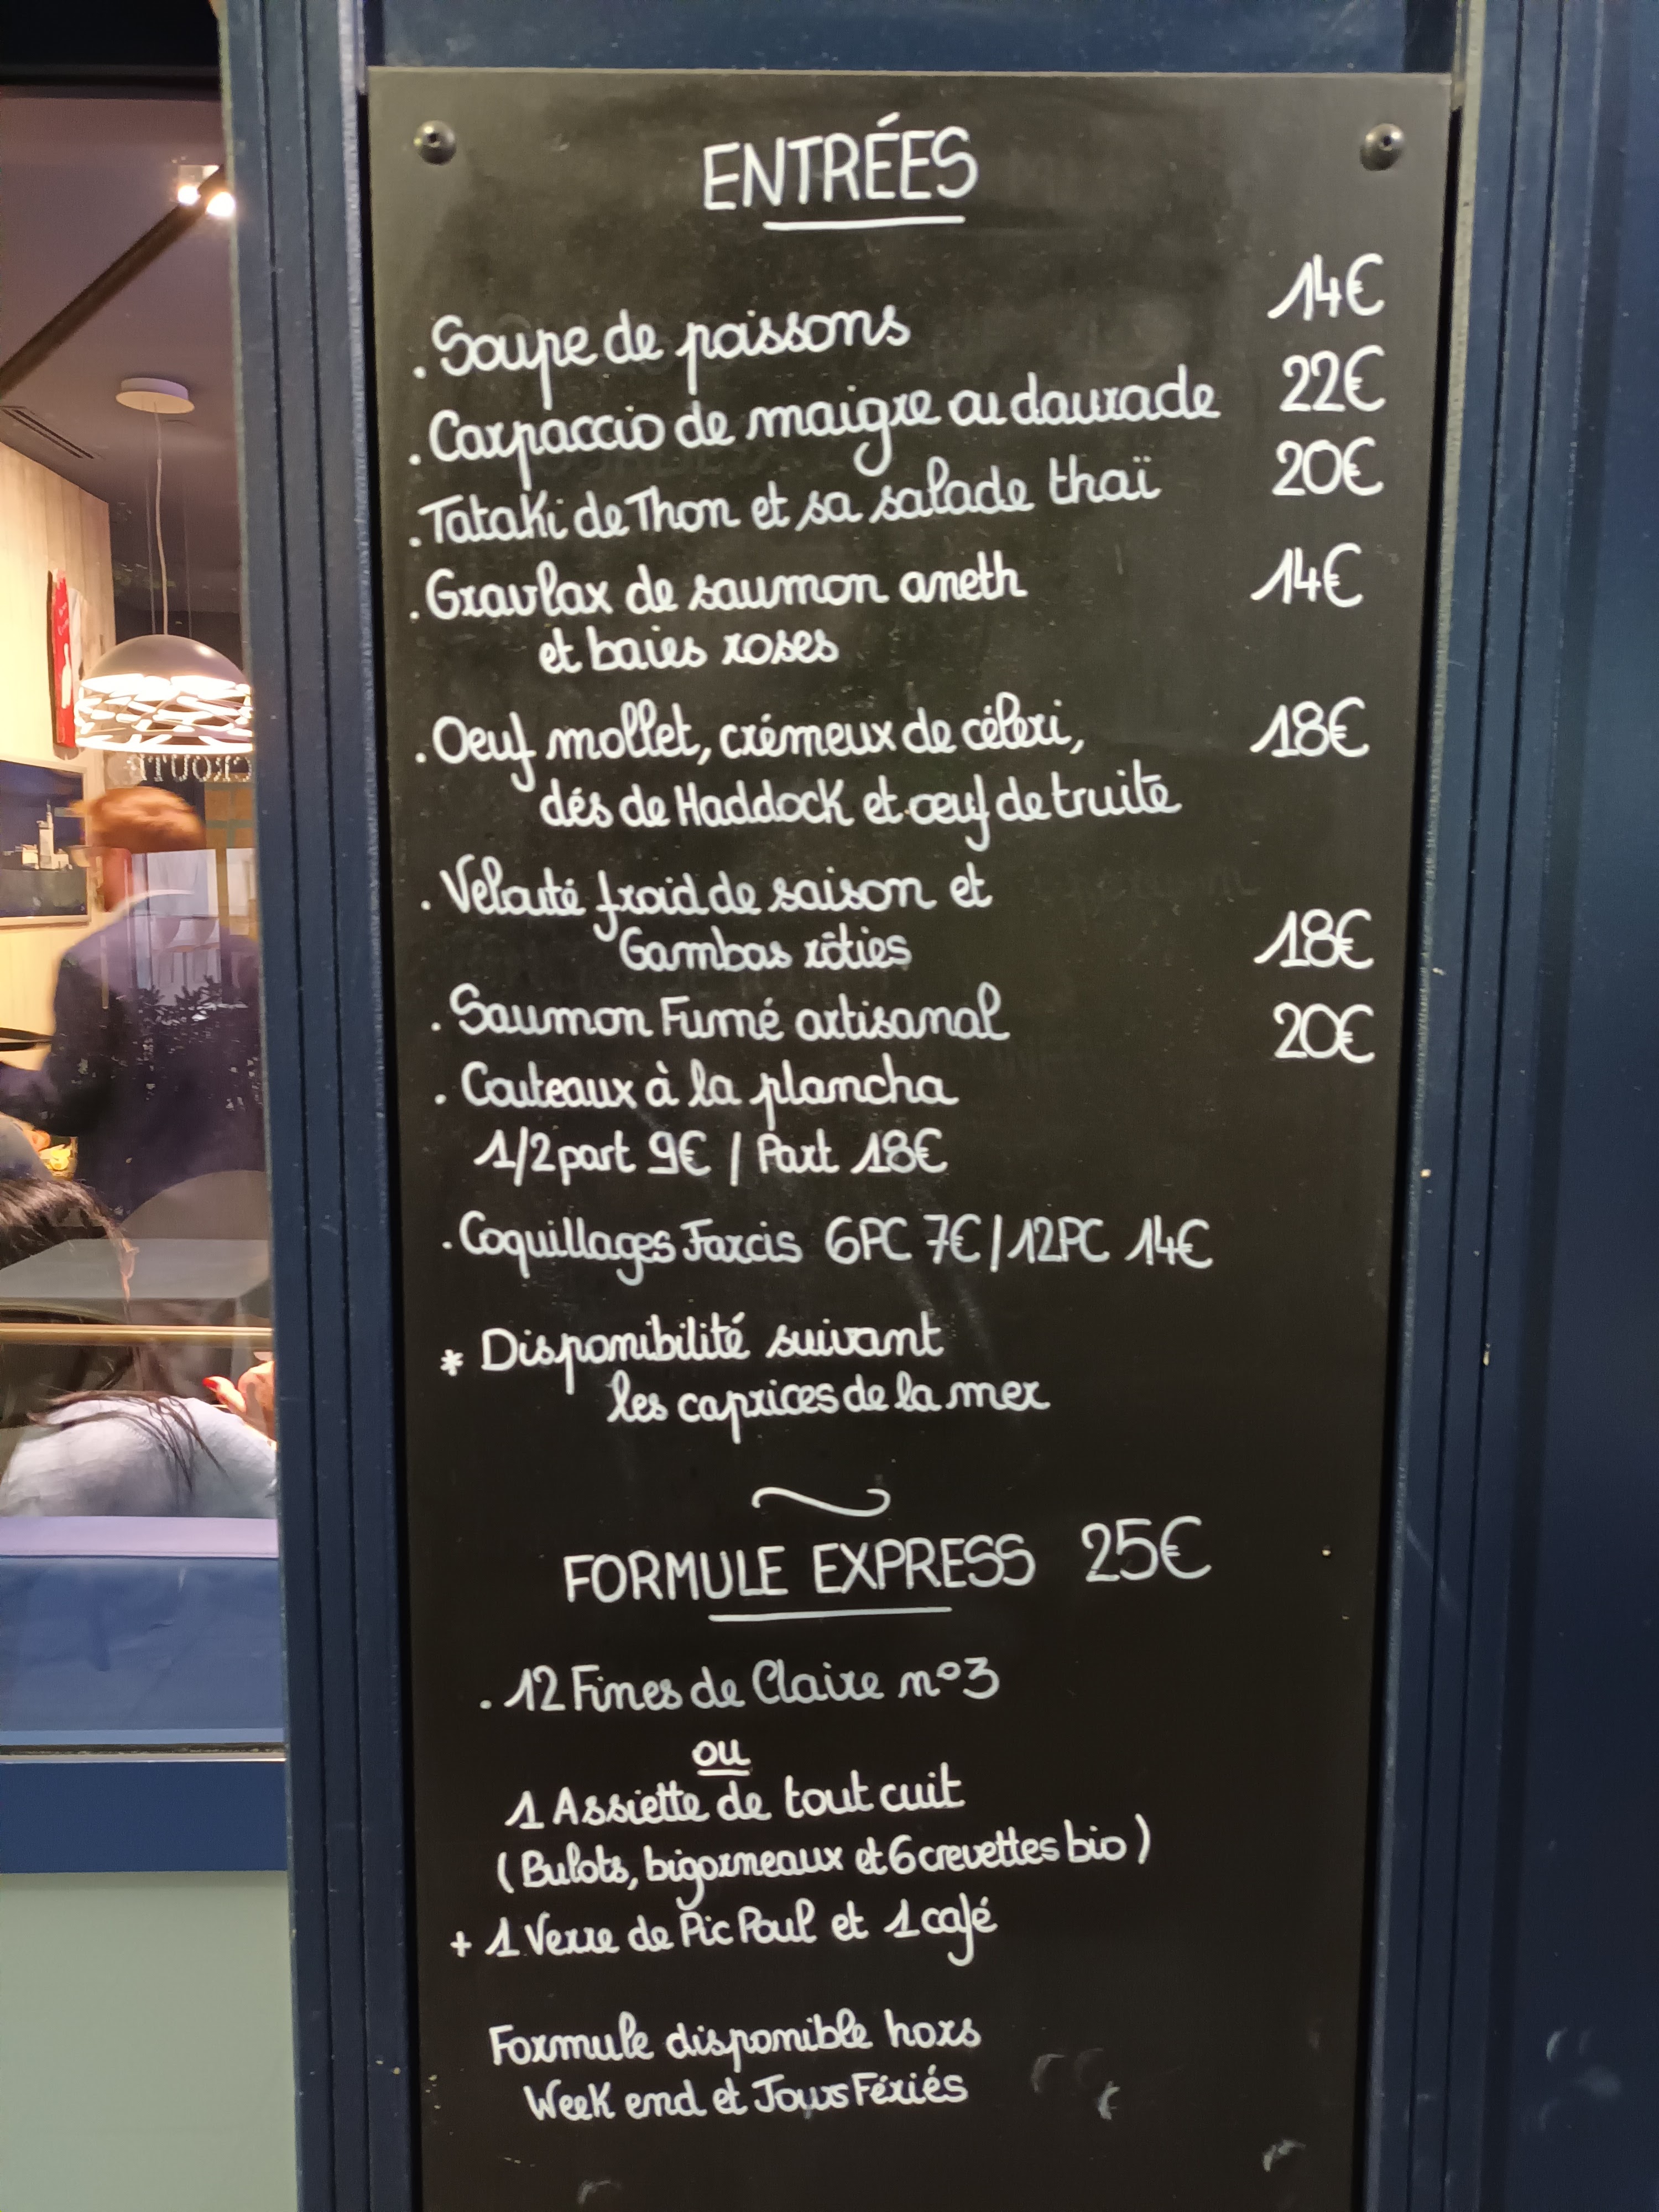 ENTRÉES
. Soupe de poissons 14€
. Carpaccio de maigre ou daurade 22€
. Tataki de Thon et sa salade thaï 20€
. Gravlax de saumon aneth 14€
et baies roses
. Oeuf mollet, crémeux de céleri, 18€
dés de Haddock et œuf de truite
. Velouté froid de saison et
Gambas rôties 18€
. Saumon Fumé artisanal 20€
. Couteaux à la plancha
1/2 part 9€ / Part 18€
. Coquillages Farcis 6PC 7€ / 12PC 14€
* Disponibilité suivant
les caprices de la mer
FORMULE EXPRESS 25€
. 12 Fines de Claire n°3
ou
1 Assiette de tout cuit
( Bulots, bigorneaux et 6 crevettes bio )
+ 1 Verre de Pic Poul et 1 café
Formule disponible hors
Week end et Jours Fériés